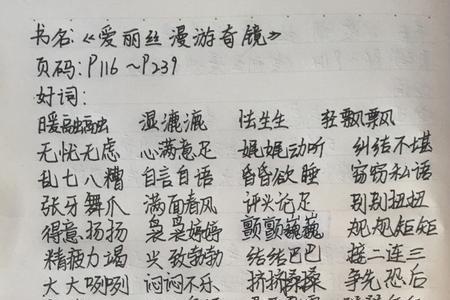 书名:《爱丽丝漫游奇镜》
页码:P116~P239
好词:
暖融融 湿漉漉 怯生生 轻飘飘
无忧无虑 心满意足 娓娓动听 纠结不堪
乱七八糟 自言自语 昏昏欲睡 窃窃私语
张牙舞爪 满面春风 评头论足 别别扭扭
得意扬扬 袅袅婷婷 颤颤巍巍 规规矩矩
精疲力竭 兴致勃勃 结结巴巴 接二连三
大大咧咧 闷闷不乐 挤挤搡搡 争先恐后